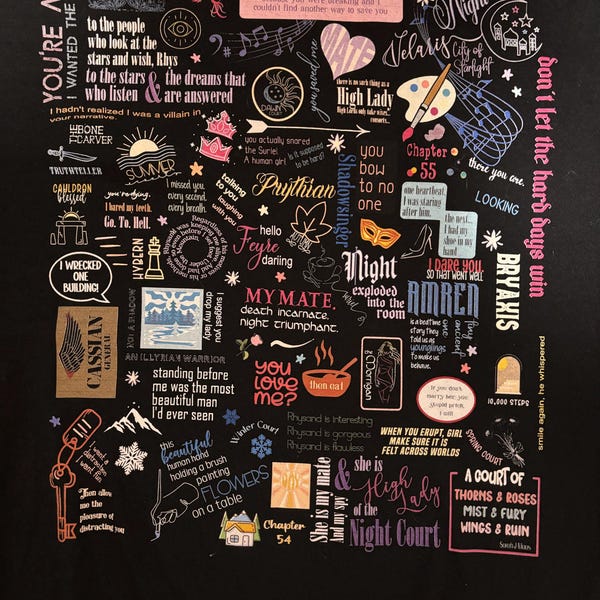 couldn't find another way to save you
YOU'RE A
I WANTED THE
to the people
who look at the
stars and wish, Rhys
to the stars & the dreams that
who listen are answered
MATE
you saved me
DAWN
COURT
there is no such thing as a
High Lady
High Lords only take wives...
consorts...
Night
Velaris
City of
Starlight
don't let the hard days win
I hadn't realized I was a villain in
your narrative.
THE BONE
CARVER
TRUTHTELLER
SUMMER
you actually snared
the Suriel.
A human girl
is it supposed
to be hard?
Shadowsinger
you
bow
to no
one
Chapter
55
there you are.
LOOKING
CAULDRON
blessed
you're dying.
I bared my teeth.
Go. To. Hell.
I missed you.
every second.
every breath.
talking
to you
laughing
with you
Prythian
one heartbeat,
I was staring
after him.
the next...
I had my
shoe in my
hand
I WRECKED
ONE
BUILDING!
HYBERN
hello
Feyre
darling
Night
exploded
into the
room
I DARE YOU
SO THAT WENT WELL
AMREN
is a bedtime
story they
told us as
younglings
to make us
behave.
tiny
ancient
one
BRYAXIS
CASSIAN
GENERAL
NOT A SHADOW
I suggest you
drop my lady
MY MATE,
death incarnate.
night triumphant.
AN ILLYRIAN WARRIOR
standing before
me was the most
beautiful man
I'd ever seen
you
love
me?
then eat
Morrigan
If you don't
marry her, you
stupid prick,
I will
10,000 STEPS
smile again, he whispered
Rhysand is interesting
Rhysand is gorgeous
Rhysand is flawless
WHEN YOU ERUPT, GIRL
MAKE SURE IT IS
FELT ACROSS WORLDS
SPRING COURT
Then allow
me the
pleasure of
distracting you
this
beautiful
human hand
holding a brush
painting
FLOWERS
on a table
Winter Court
Chapter
54
She is my mate
And my spy
& she is
High Lady
of the
Night Court
A COURT OF
THORNS & ROSES
MIST & FURY
WINGS & RUIN
Sarah J Maas